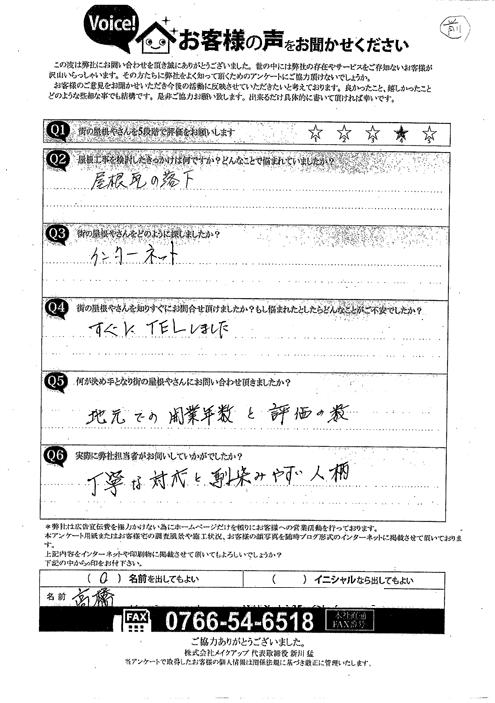 Voice!
お客様の声をお聞かせください
この度は弊社にお問い合わせを頂き誠にありがとうございました。世の中には弊社の存在やサービスをご存知ないお客様が
沢山いらっしゃいます。その方たちに弊社をよく知って頂くためのアンケートにご協力頂けないでしょうか。
お客様のご意見をお聞かせいただき今後の活動に反映させていただきたいと考えております。良かったこと、嬉しかったこと
どのような些細な事でも結構です。是非ご協力お願い致します。出来るだけ具体的に書いて頂ければ幸いです。
Q1 街の屋根やさんを5段階で評価をお願いします ☆1 ☆2 ☆3 ★ ☆5
Q2 屋根工事を検討したきっかけは何ですか?どんなことで悩まれていましたか?
屋根瓦の落下
Q3 街の屋根やさんをどのように探しましたか?
インターネット
Q4 街の屋根やさんを知りすぐにお問合せ頂けましたか?もし悩まれたとしたらどんなことがご不安でしたか?
すぐに TELしました
Q5 何が決め手となり街の屋根やさんにお問い合わせ頂きましたか?
地元での開業年数と評価の数
Q6 実際に弊社担当者がお伺いしていかがでしたか?
丁寧な対応と馴染みやすい人柄
*弊社は広告宣伝費を極力かけない為にホームページだけを頼りにお客様への営業活動を行っております。
本アンケート用紙またはお客様宅の調査風景や施工状況、お客様の顔写真を随時ブログ形式のインターネットに掲載させて頂いておりま
す。
上記内容をインターネットや印刷物に掲載させて頂いてもよろしいでしょうか?
下記の中からの印をお付下さい。
( O ) 名前を出してもよい ( ) イニシャルなら出してもよい
名前 高橋
FAX 0766-54-6518 本社直通 FAX番号
ご協力ありがとうございました。
株式会社メイクアップ 代表取締役 新川 猛
当アンケートで取得したお客様の個人情報は関係法規に基づき厳正に管理いたします。